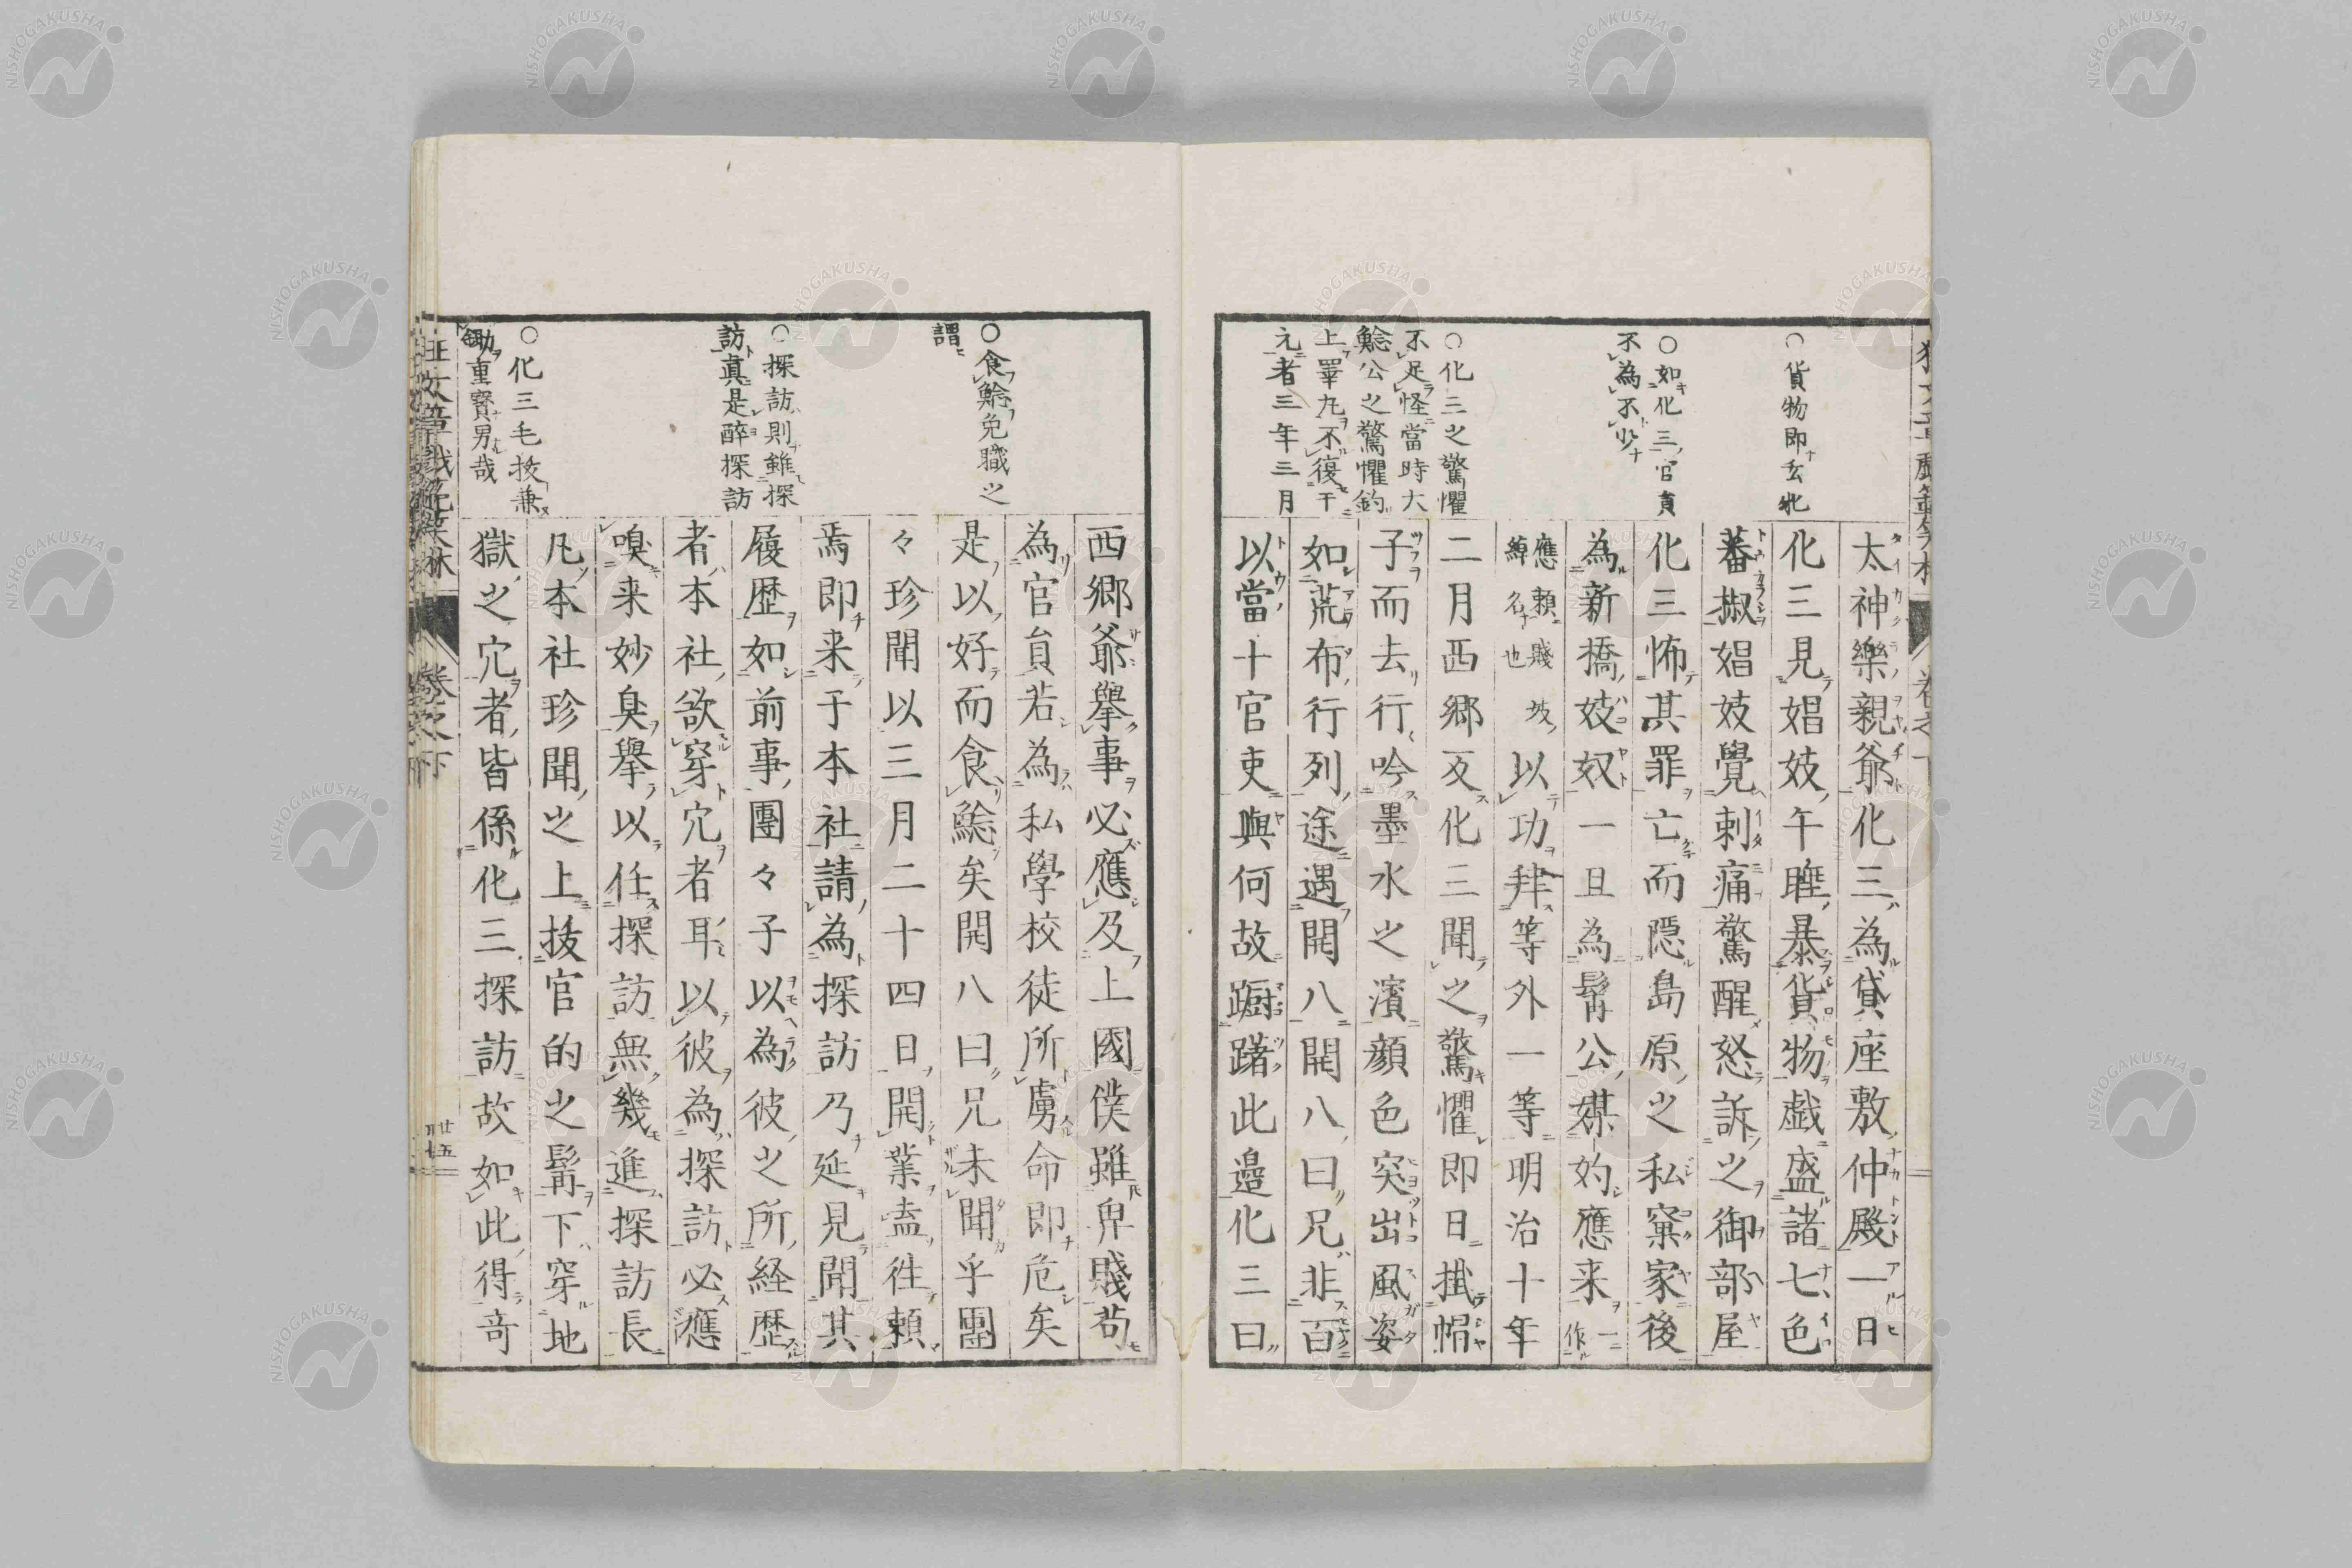 ○貨物即玄牝
○如化三官員
不為不少
○化三之驚懼
不足怪當時大
鯰公之驚懼釣
上睾丸不復干
元者三年三月
太神樂親爺化三為貸座敷仲殿一日
化三見娼妓午睡暴貨物戯盛諸七色
蕃椒娼妓覺刺痛驚醒怒訴之御部屋
化三怖其罪亡而隠島原之私窠家後
為新橋妓奴一旦為髯公媒妁應来作一
應頼賤妓
綽名也
以功拜等外一等明治十年
二月西郷反化三聞之驚懼即日掛帽
子而去行吟墨水之濱顔色突出風姿
如荒布行列途遇開八開八曰兄非百
以當十官吏與何故蹰躇此邉化三曰
○食鯰免職之
謂
○探訪則雖探
訪真是醉探訪
○化三毛抜兼
鋤重寳男哉
西郷爺擧事必應及上國僕雖卑賤苟
為官員若為私學校徒所虜命即危矣
是以好而食鯰矣開八曰兄未聞乎團
々珍聞以三月二十四日開業盍徃頼
焉即来于本社請為探訪乃延見聞其
履歴如前事團々子以為彼之所経歴
者本社欲穿穴者耳以彼為探訪必應
嗅来妙臭擧以任探訪無幾進探訪長
凡本社珍聞之上抜官的之髯下穿地
獄之穴者皆係化三探訪故如此得竒
狂文章戯範笑林
卷之下
廿五